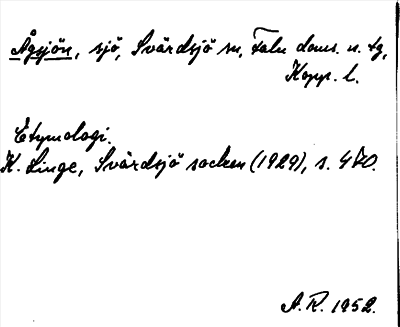 Ågsjön, sjö, Svärdsjö sn, Falu doms. n. tg,
Kopp. l.
Etymologi.
K. Linge, Svärdsjö socken (1929), s. 480.
A. R. 1952.